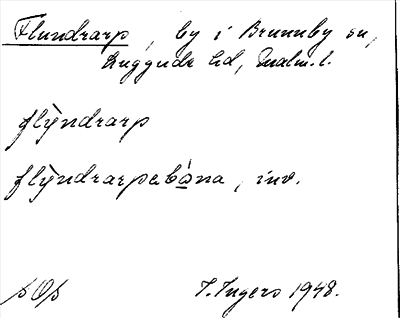 Flundrarp, by i Brunnby sn,
Luggude hd, Malm. l.
flÿndrarp
flÿndrarpabåna, inv.
sOs
I. Ingers 1948.